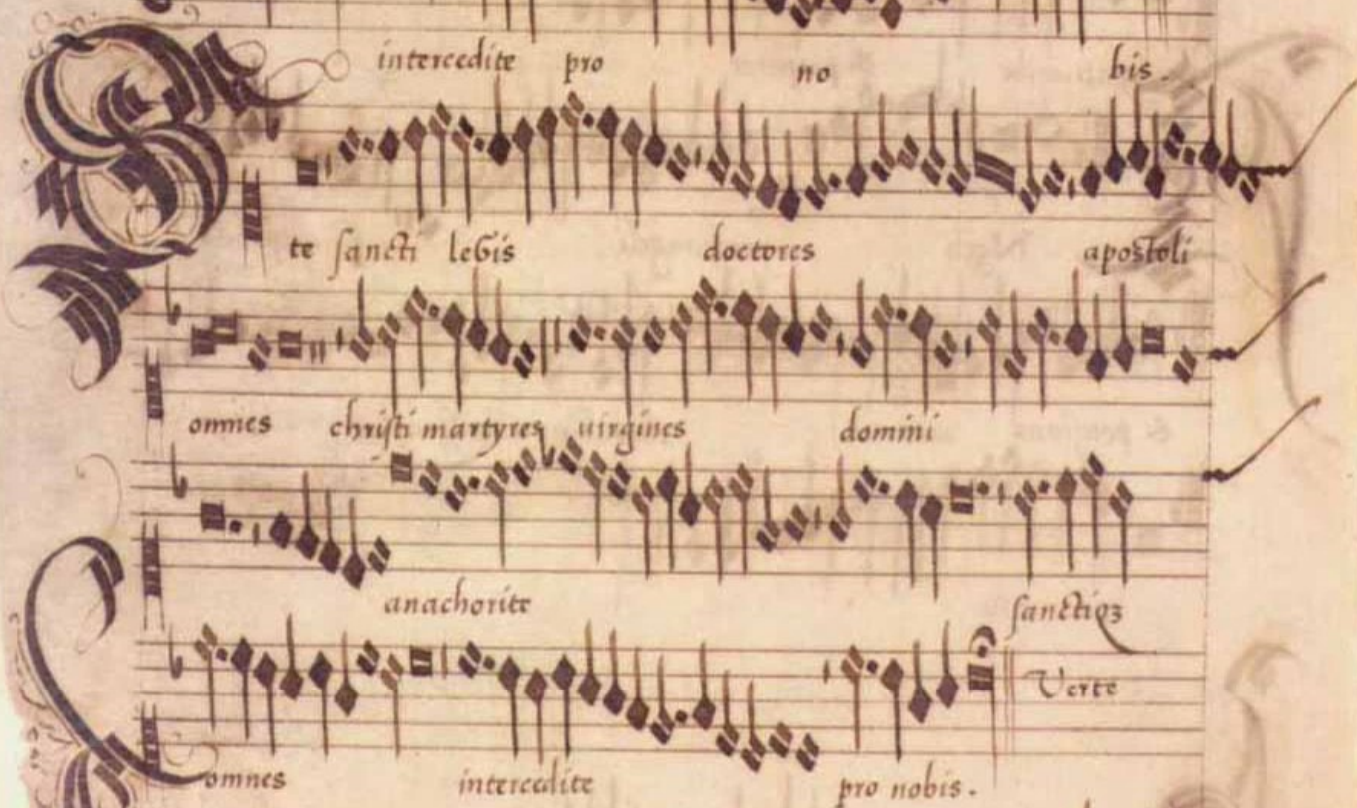 intercedite pro no bis.
te sancti legis doctores apostoli
omnes christi martyres virgines domini
anachorite sanctiqz
omnes intercedite pro nobis. Verte